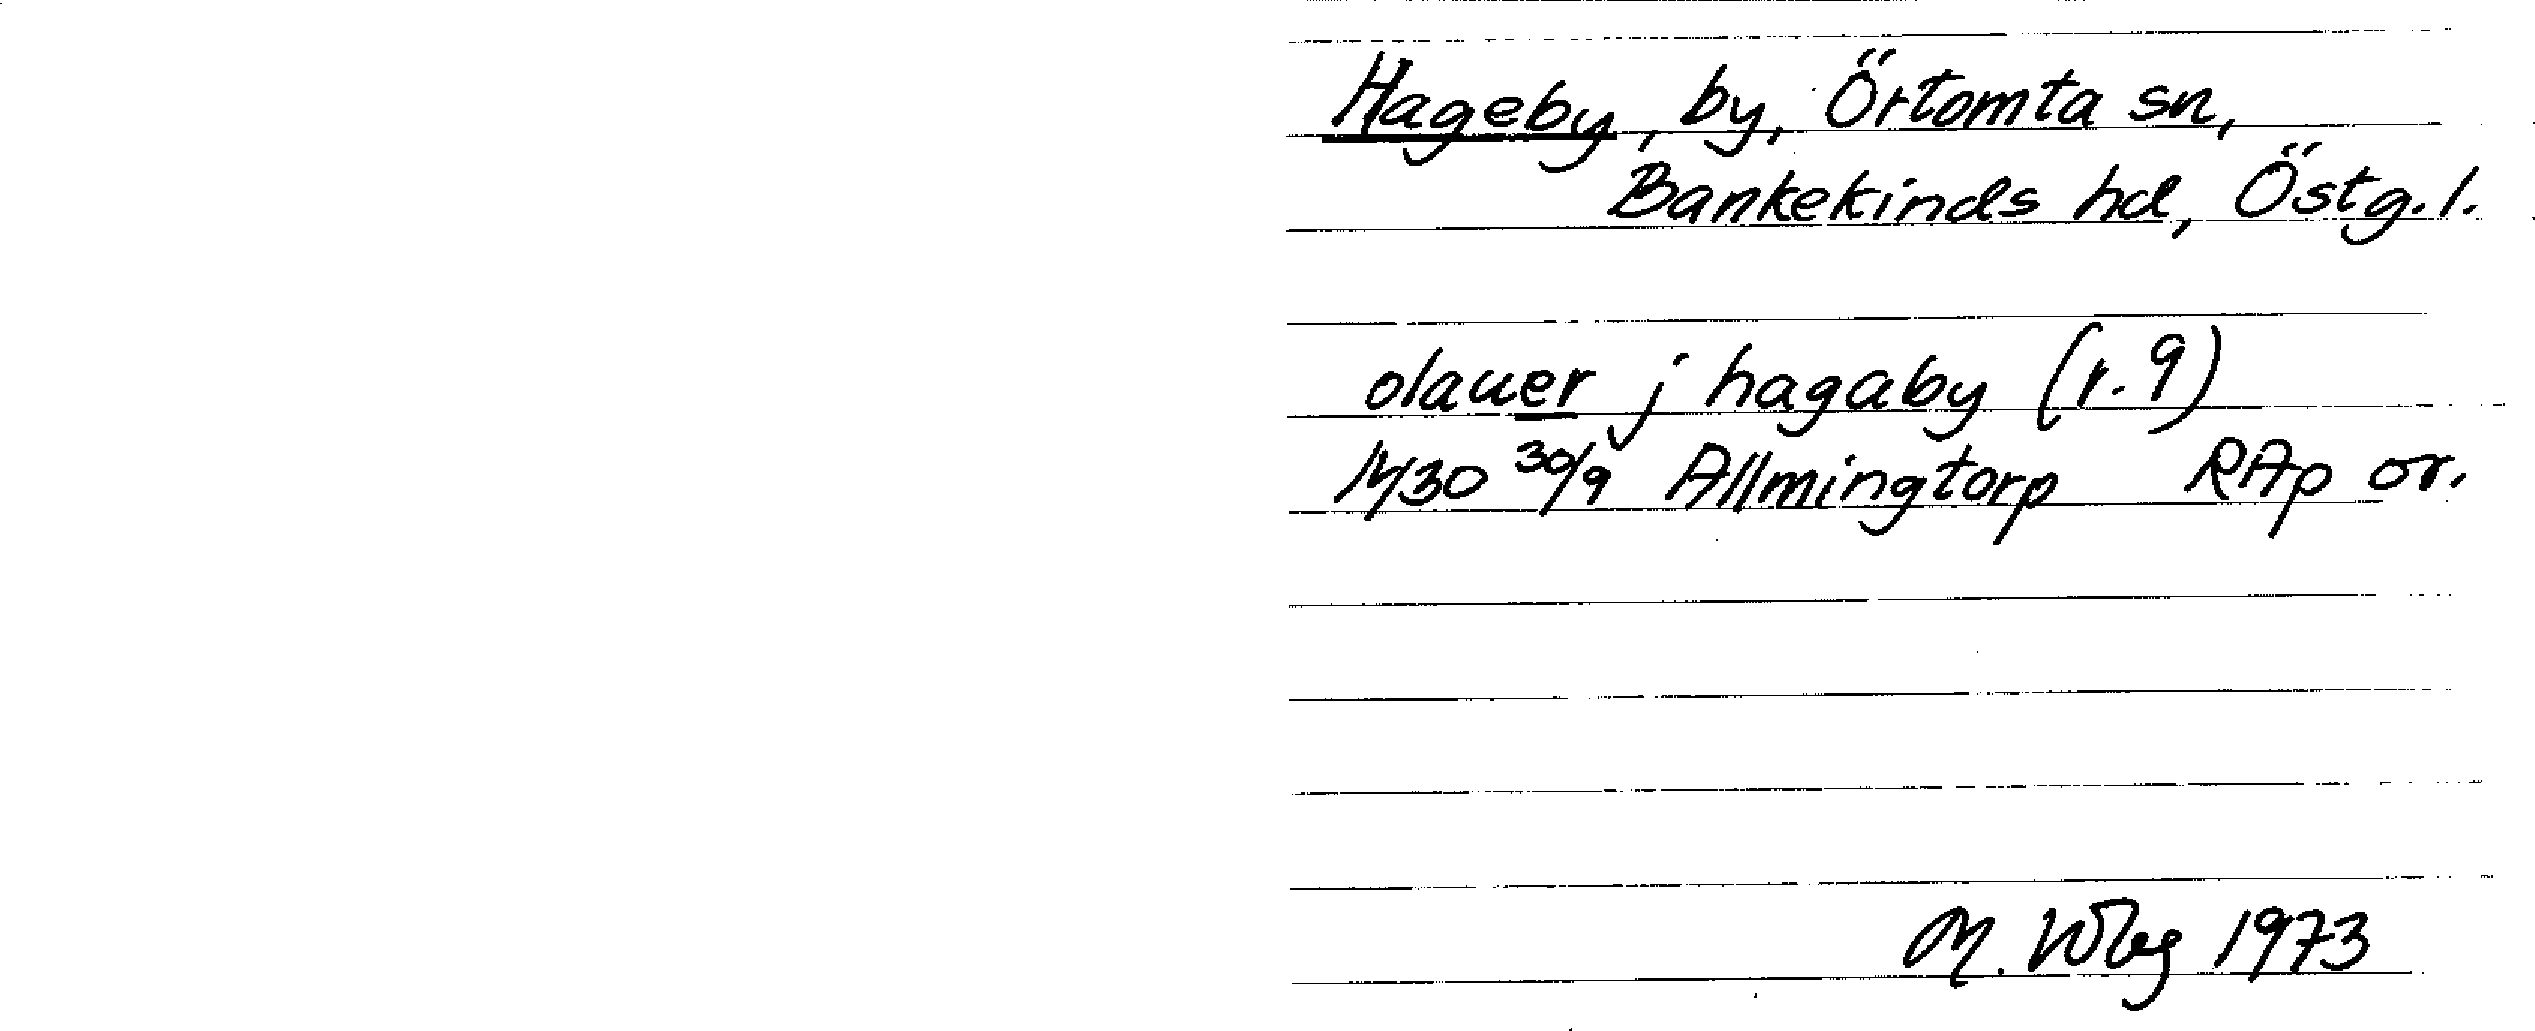 Hageby, by, Örtomta sn,
Bankekinds hd, Östg.l.
olauer j hagaby (r. 9)
1430 30/9 Allmingtorp RAp or.
M. Wbg 1973